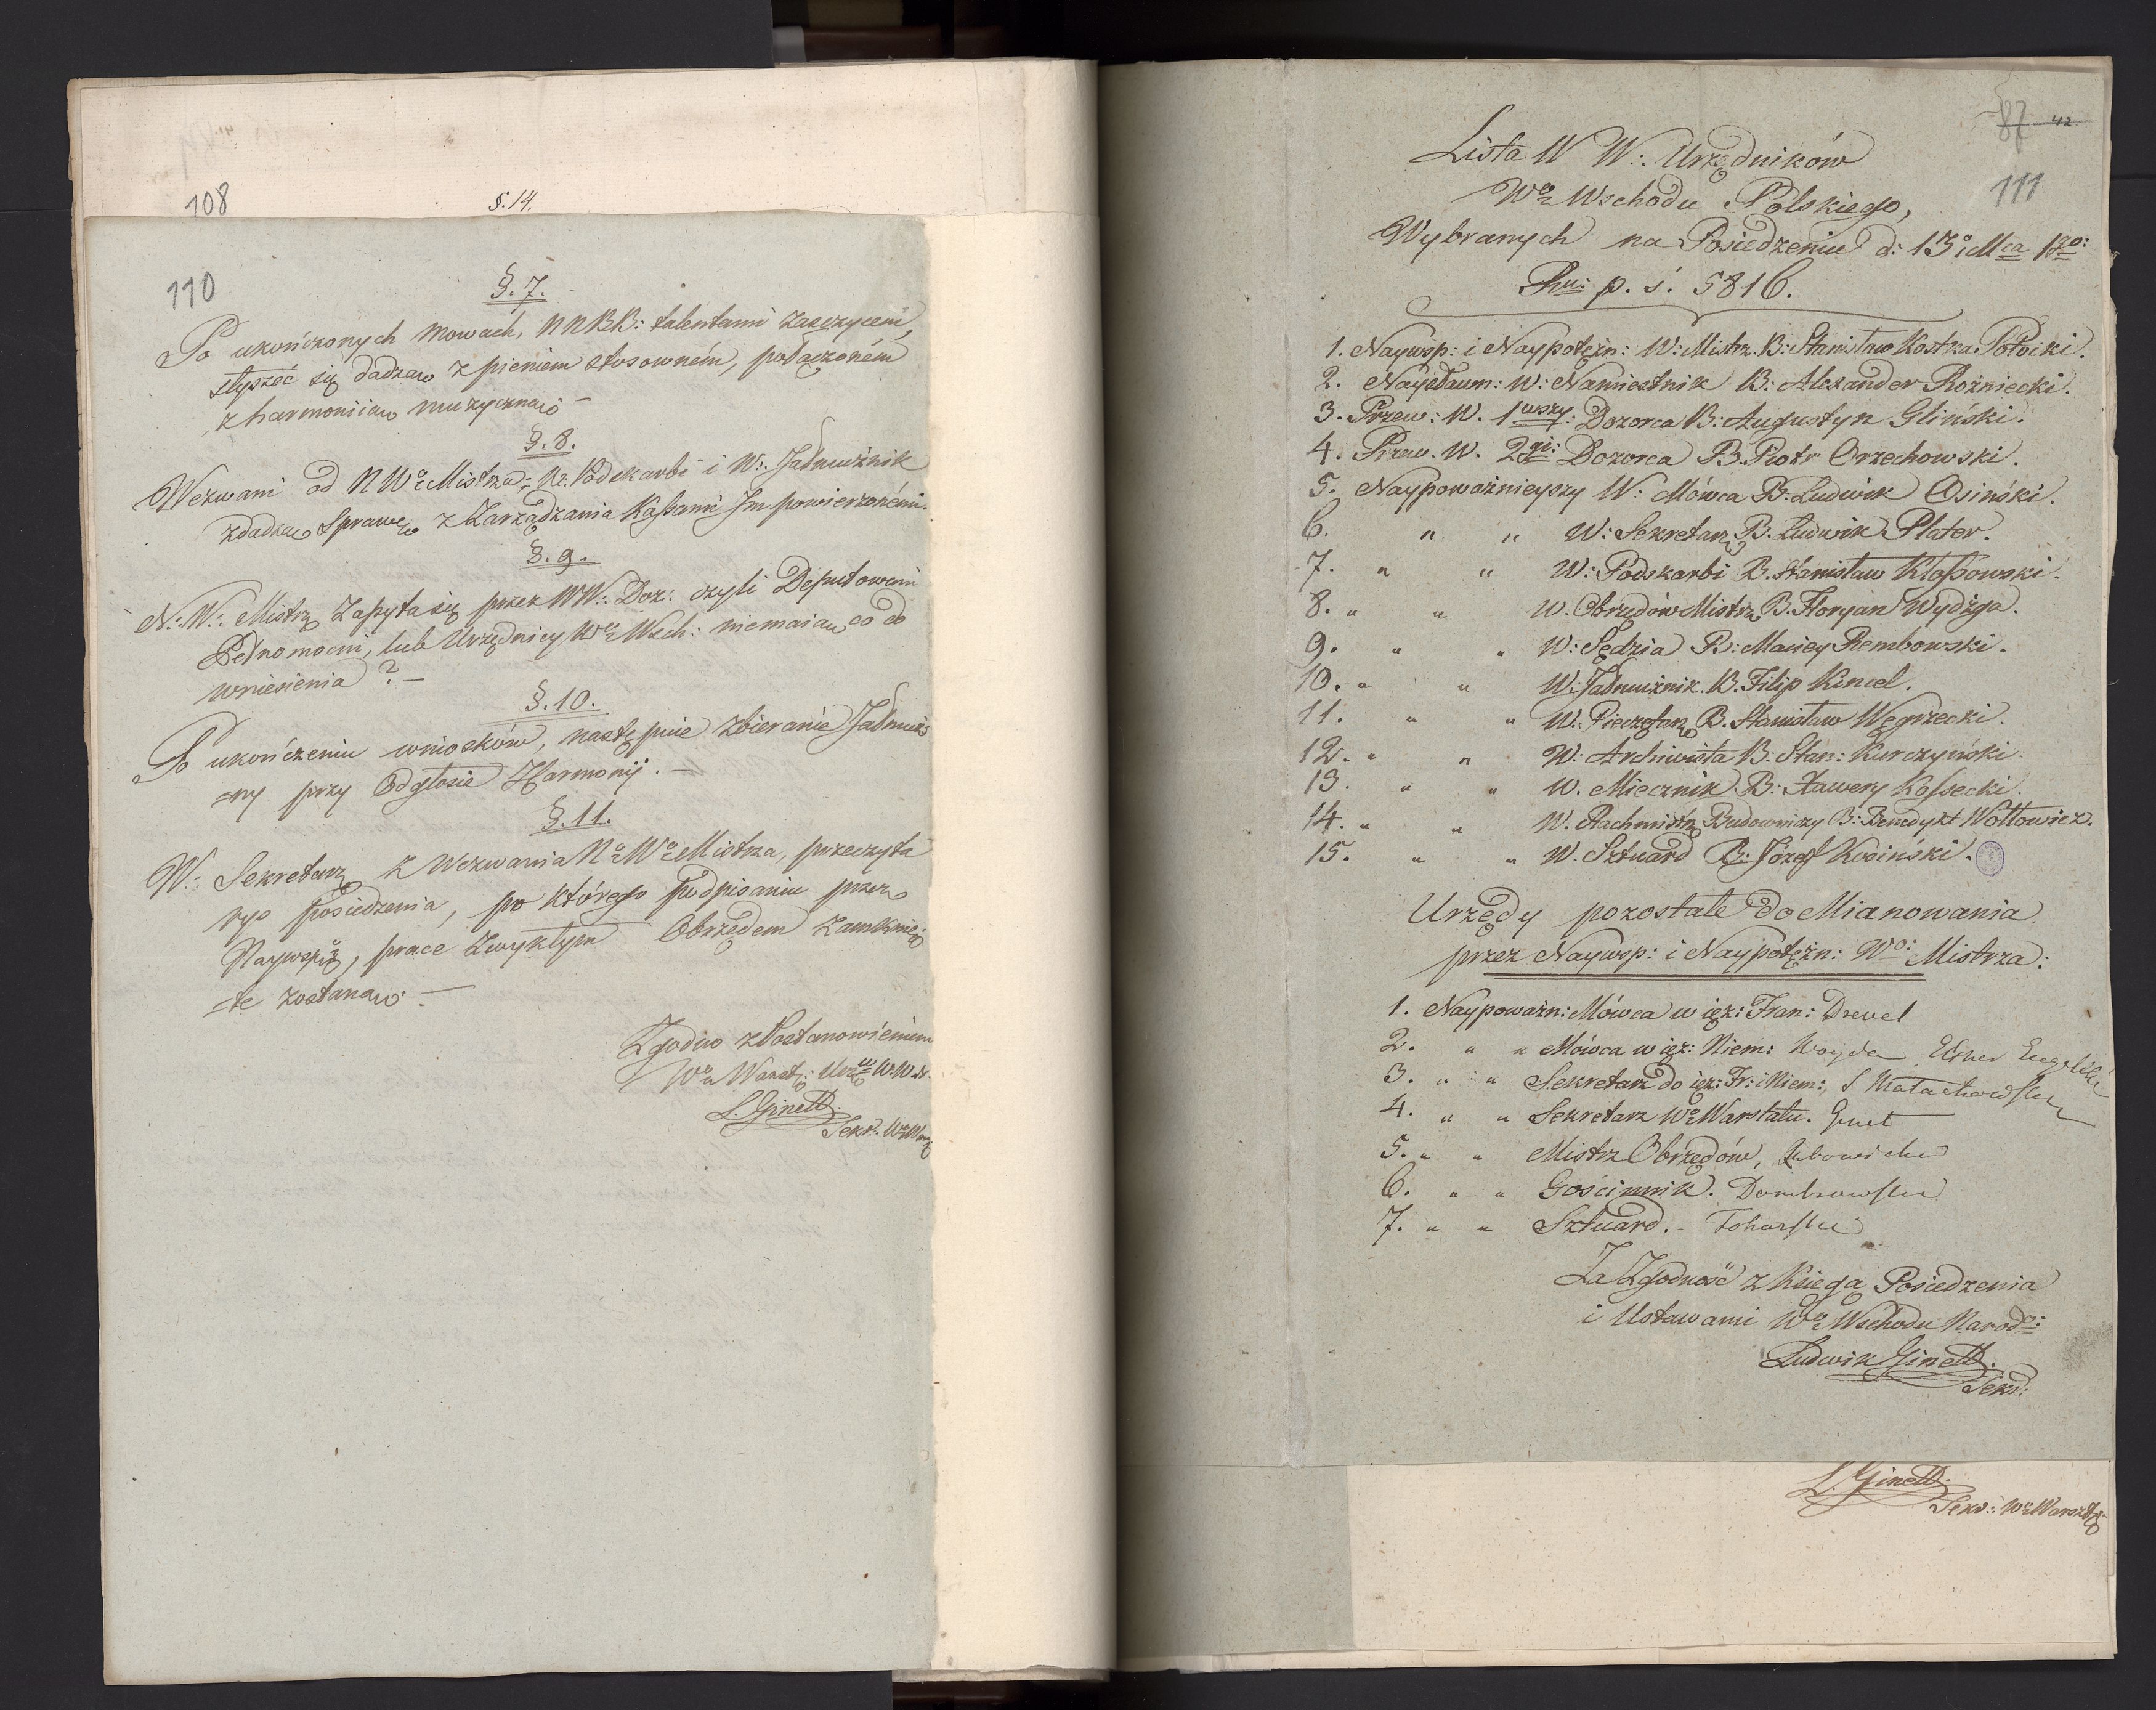 108
§. 14.
110
§. 7.
Po ukończonych mowach, NNBB: talentami zasczyceni,
słyszeć się dadzą z pieniem stosowném, połączoném
z harmoniią muzyczną –
§. 8.
Wezwani od N Wo Mistrza; W: Podskarbi i W: Jałmużnik
zdadzą Sprawę z Zarządzania Kaßami Im powierzonémi.
§. 9.
N: W: Mistrz Zapyta się przez WW: Doz: czyli Deputowani
Pełnomocni, lub Urzędnicy Wo Wsch: niemaią co do
wniesienia? –
§. 10.
Po ukończeniu wniosków, nastąpi zbieranie Jałmuż
=ny przy Odgłosie Harmonij. –
§. 11.
W: Sekretarz z Wezwania No Wo Mistrza, przeczyta
rys posiedzenia, po którego podpisaniu przez
Naywsp:, prace zwykłym Obrzędem zamknię=
=te zostaną. –
Zgodno z Postanowieniem
L. Ginett.
Sekr. Wo Warsz
87 42.
111
Lista W W: Urzędników
Wo Wschodu Polskiego,
Wybranych na Posiedzeniu d: 13o Mca 1go:
Ru: p. ś. 5816.
1. Naywsp: i Naypotężn: W: Mistrz B: Stanisław Kostka Potocki.
2. Naysławn: W: Namiestnik B: Alexander Rożniecki.
3. Przew: W. 1wszy: Dozorca B: Augustyn Gliński.
4. Przew. W. 2gi: Dozorca B. Piotr Orzechowski.
5. Naypoważnieyszy W: Mówca B. Ludwik Osiński.
6. " " W: Sekretarz B. Ludwik Plater.
7. " " W: Podskarbi B. Stanisław Kłoßowski.
8. " " W. Obrzędów Mistrz B. Floryan Wydżga.
9. " " W: Sędzia B: Maciey Rembowski.
10. " " W: Jałmużnik. B. Filip Kincel.
11. " " W. Pieczętarz B. Stanisław Węgrzecki.
12. " " W: Archiwista B: Stan: Kurczyński.
13. " " W. Miecznik B: Xawery Koßecki.
14. " " W. Rachmistrz Budowniczy B: Benedykt Wołłowicz.
15. " " W. Sztuard B: Józef Kosiński.
Urzędy pozostałe do Mianowania
przez Naywsp: i Naypotężn: Wo: Mistrza:
1. Naypoważn: Mówca w ięz: Fran: Drevel
2. " " Mówca w ięz: Niem: Woyda Elsner
3. " " Sekretarz do ięz: Fr: i Niem:, S Małachowski
4. " " Sekretarz Wo Warstatu. Ginet
5. " " Mistrz Obrzędów, Lubowicki
6. " " Gościnnik. Dombrowski
7. " " Sztuard. –
Za Zgodność z Księgą Posiedzenia
i Ustawami Wo Wschodu Narodo:
Ludwik Ginett.
Sekr:
L. Ginett.
Sekr: Wo Warszt